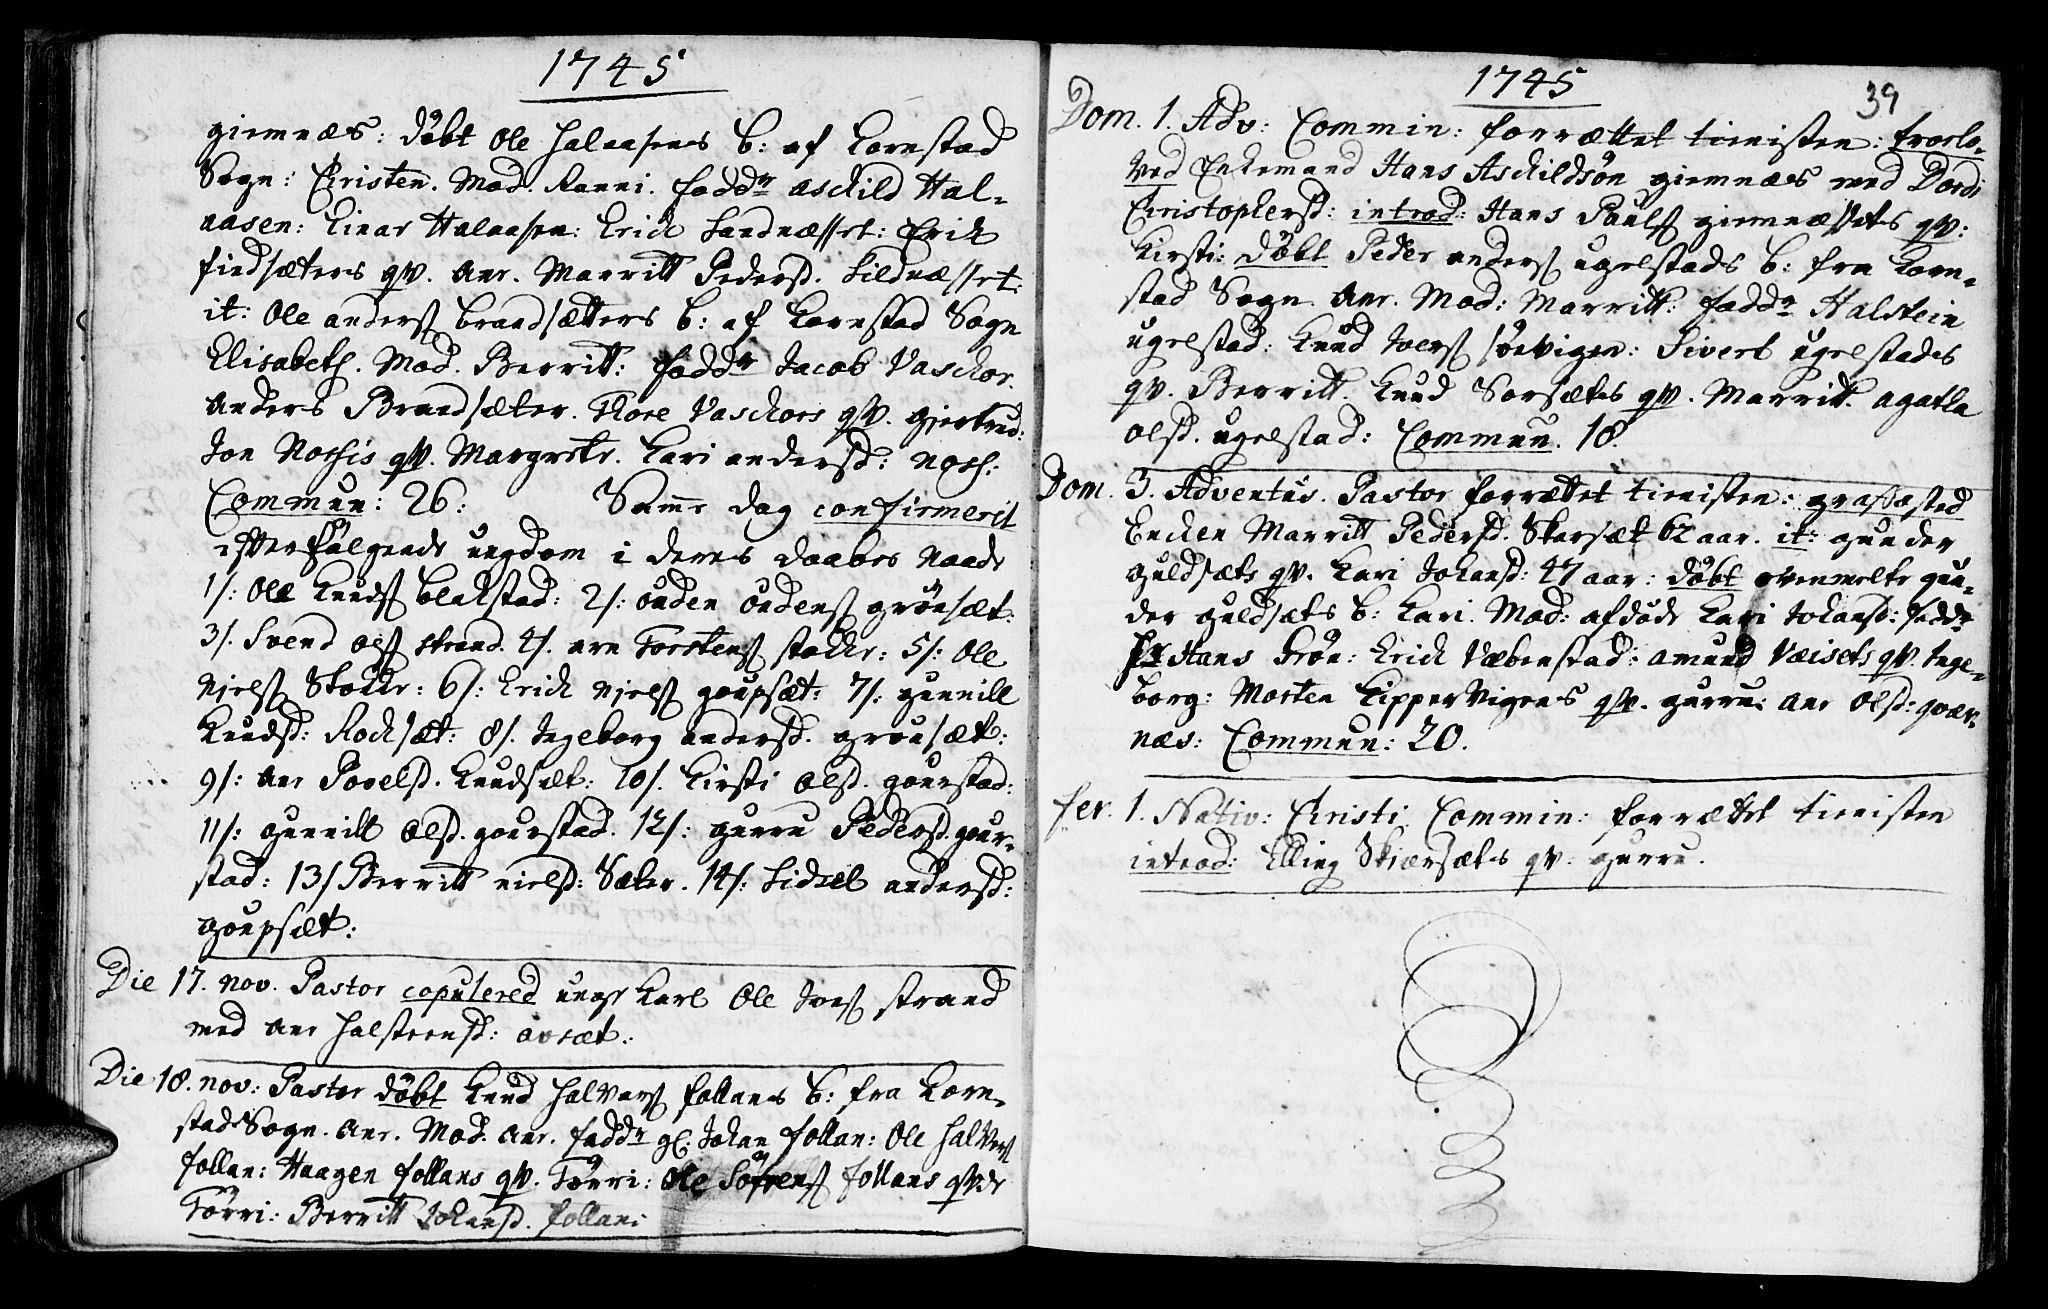 1745
giemnæs: döbt Ole Halaasens B: af Kornstad
Sogn: Christen. Mod. Ranni. fadd.r Aschild Hal-
aasen: Einar Halaasen: Erich Sandnæsset: Erich
findsæters qv. Ane. Marritt Pedersd. Sildnæsset:
it: Ole anders brandsætters b: af Kornstad Sogn
Elisabeth. Mod. Berritt: fadd.r Jacob Vaschor.
Anders Brandsæter. Thore Vaschors qv. gjertrud:
Jon Noshis qv. Margrete. Kari andersd: Nosh:
Commun: 26: Samme dag confirmerit
efterfølgende ungdom i deres daabes Naade
1/: Ole Knuds blakstad: 2/: önden öndens grönsæt:
3/. Svend Ols strand. 4/. arn Torstens stokke: 5/: Ole
Njels Stokke: 6/: Erich Njels goupsæt: 7/: gunnill
Knudsd: Rochsæt: 8/. Ingeborg andersd. grönsæt:
9/: Ane Povelsd. Knudsæt: 10/. Kirsti Olsd. gourstad:
11/: gunnill Olsd. gourstad. 12/: gurru Pedersd. gour-
stad: 13/ Berritt nielsd: Sæter. 14/: Lidsel andersd:
goupsæt:
Die 17. nov. Pastor copulered unge Karl Ole Ives strand
med Ane Halsteensd: avsæt:
Die 18. nov: Pastor döbt Knud Halvors follans b: fra Korn-
stad Sogn. Ane. Mod. Ane. fadd.r gl: Johan follan: Ole Halvors
follan: Haagen follans qv. Törri: Ole Söfrens follans qvde
Törri: Berritt Johansd. follan:
1745 39
Dom. 1. Adv: Commin: forrættet tienisten: trolo-
ved Enkemand Hans Aschildsön giemnæs med Dordi
Christophersd: introd: Hans Pauls giemnæssets qv:
Kirsti: döbt Peder anders ugelstads b: fra Korn-
stad Sogn. Ane. Mod: Marritt: fadd.r Halstein
ugelstad: Knud Ivers söevigen: Sivert ugelstads
qv. Berritt. Knud Sorsæts qv. Marritt. agatha
olsd. ugelstad: Commun. 18.
Dom. 3. Adventus. Pastor forrættet tienisten: græsfæsted
Encken Marritt Pedersd. Skarsæt 62 aar. it: gunder
guldsæts qv. Kari Johansd: 47 aar: döbt ovenmelte gun-
der guldsæts b: Kari. Mod: afdöde Kari Johansd: fadd.r
Hr Hans Grön: Erich Væbenstad: amund Væisets qv. Inge-
borg: Morten Kippervigens qv. gurru: ane Olsd: qver-
næs: Commun: 20.
fer. 1. Nativ: Christi. Commin: forrættet tienisten
introd: Elling Skiærsæts qv. gurru.